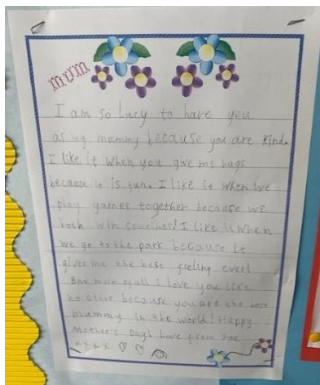 mum
I am so lucy to have you
as my mummy because you are kind.
I like it when you give me hugs
because it is fun. I like it when we
play games together because we
both win sometimes! I like it when
we go to the park because it
gives me the best feeling ever!
one more of all I love you like
no other because you are the best
mummy in the world! Happy
Mother's Day! Love from